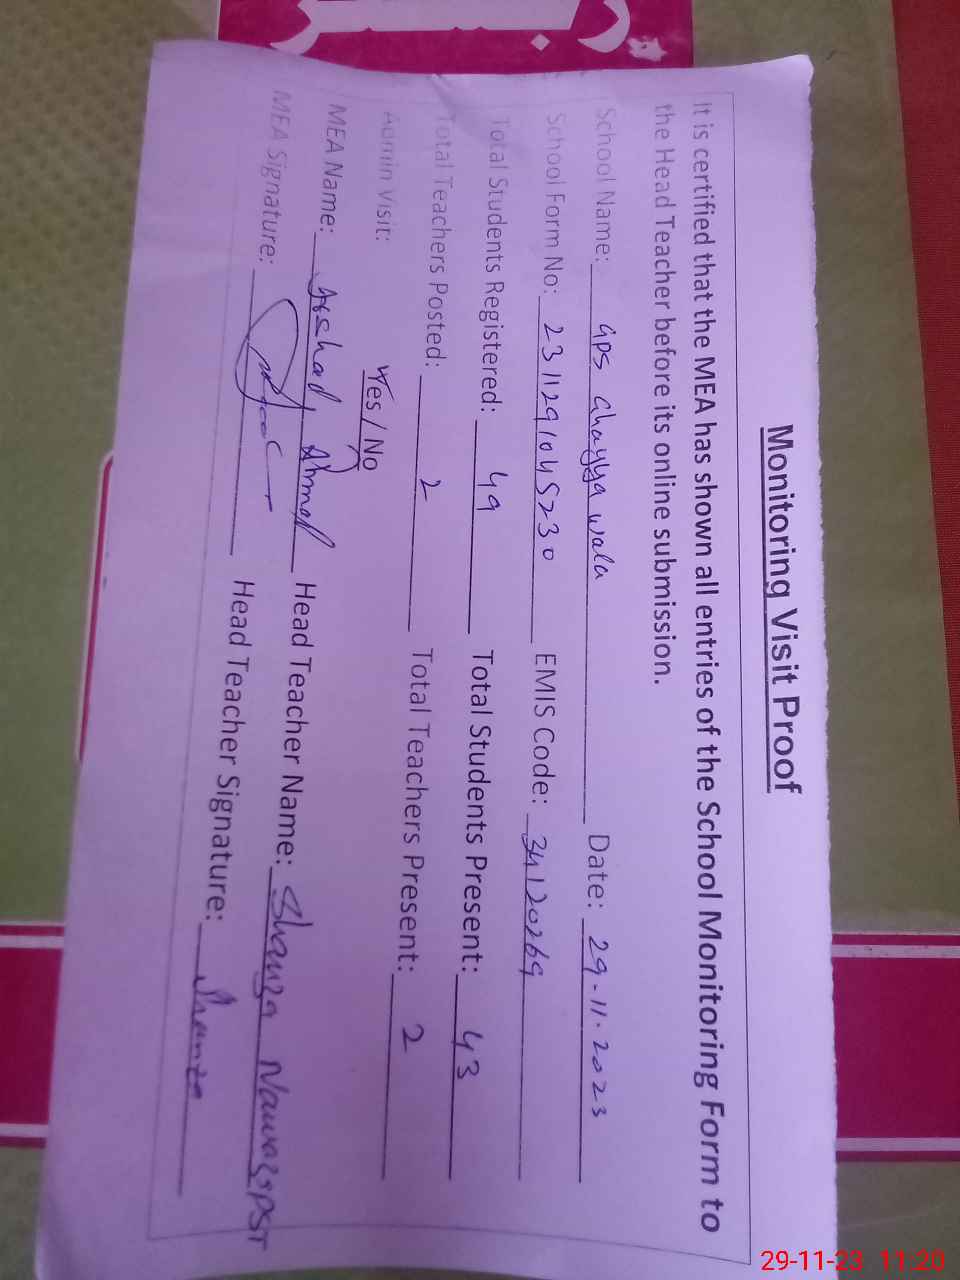 Monitoring Visit Proof
It is certified that the MEA has shown all entries of the School Monitoring Form to
the Head Teacher before its online submission.
School Name: GPS Chayyya wala Date: 29-11-2023
School Form No: 231129104S230 EMIS Code: 34120269
Total Students Registered: 49 Total Students Present: 43
Total Teachers Posted: 2 Total Teachers Present: 2
Admin Visit: Yes / No
MEA Name: Arshad Ahmad Head Teacher Name: Shanza Nawaz PST
MEA Signature: Head Teacher Signature: Shanza
29-11-23 11:20